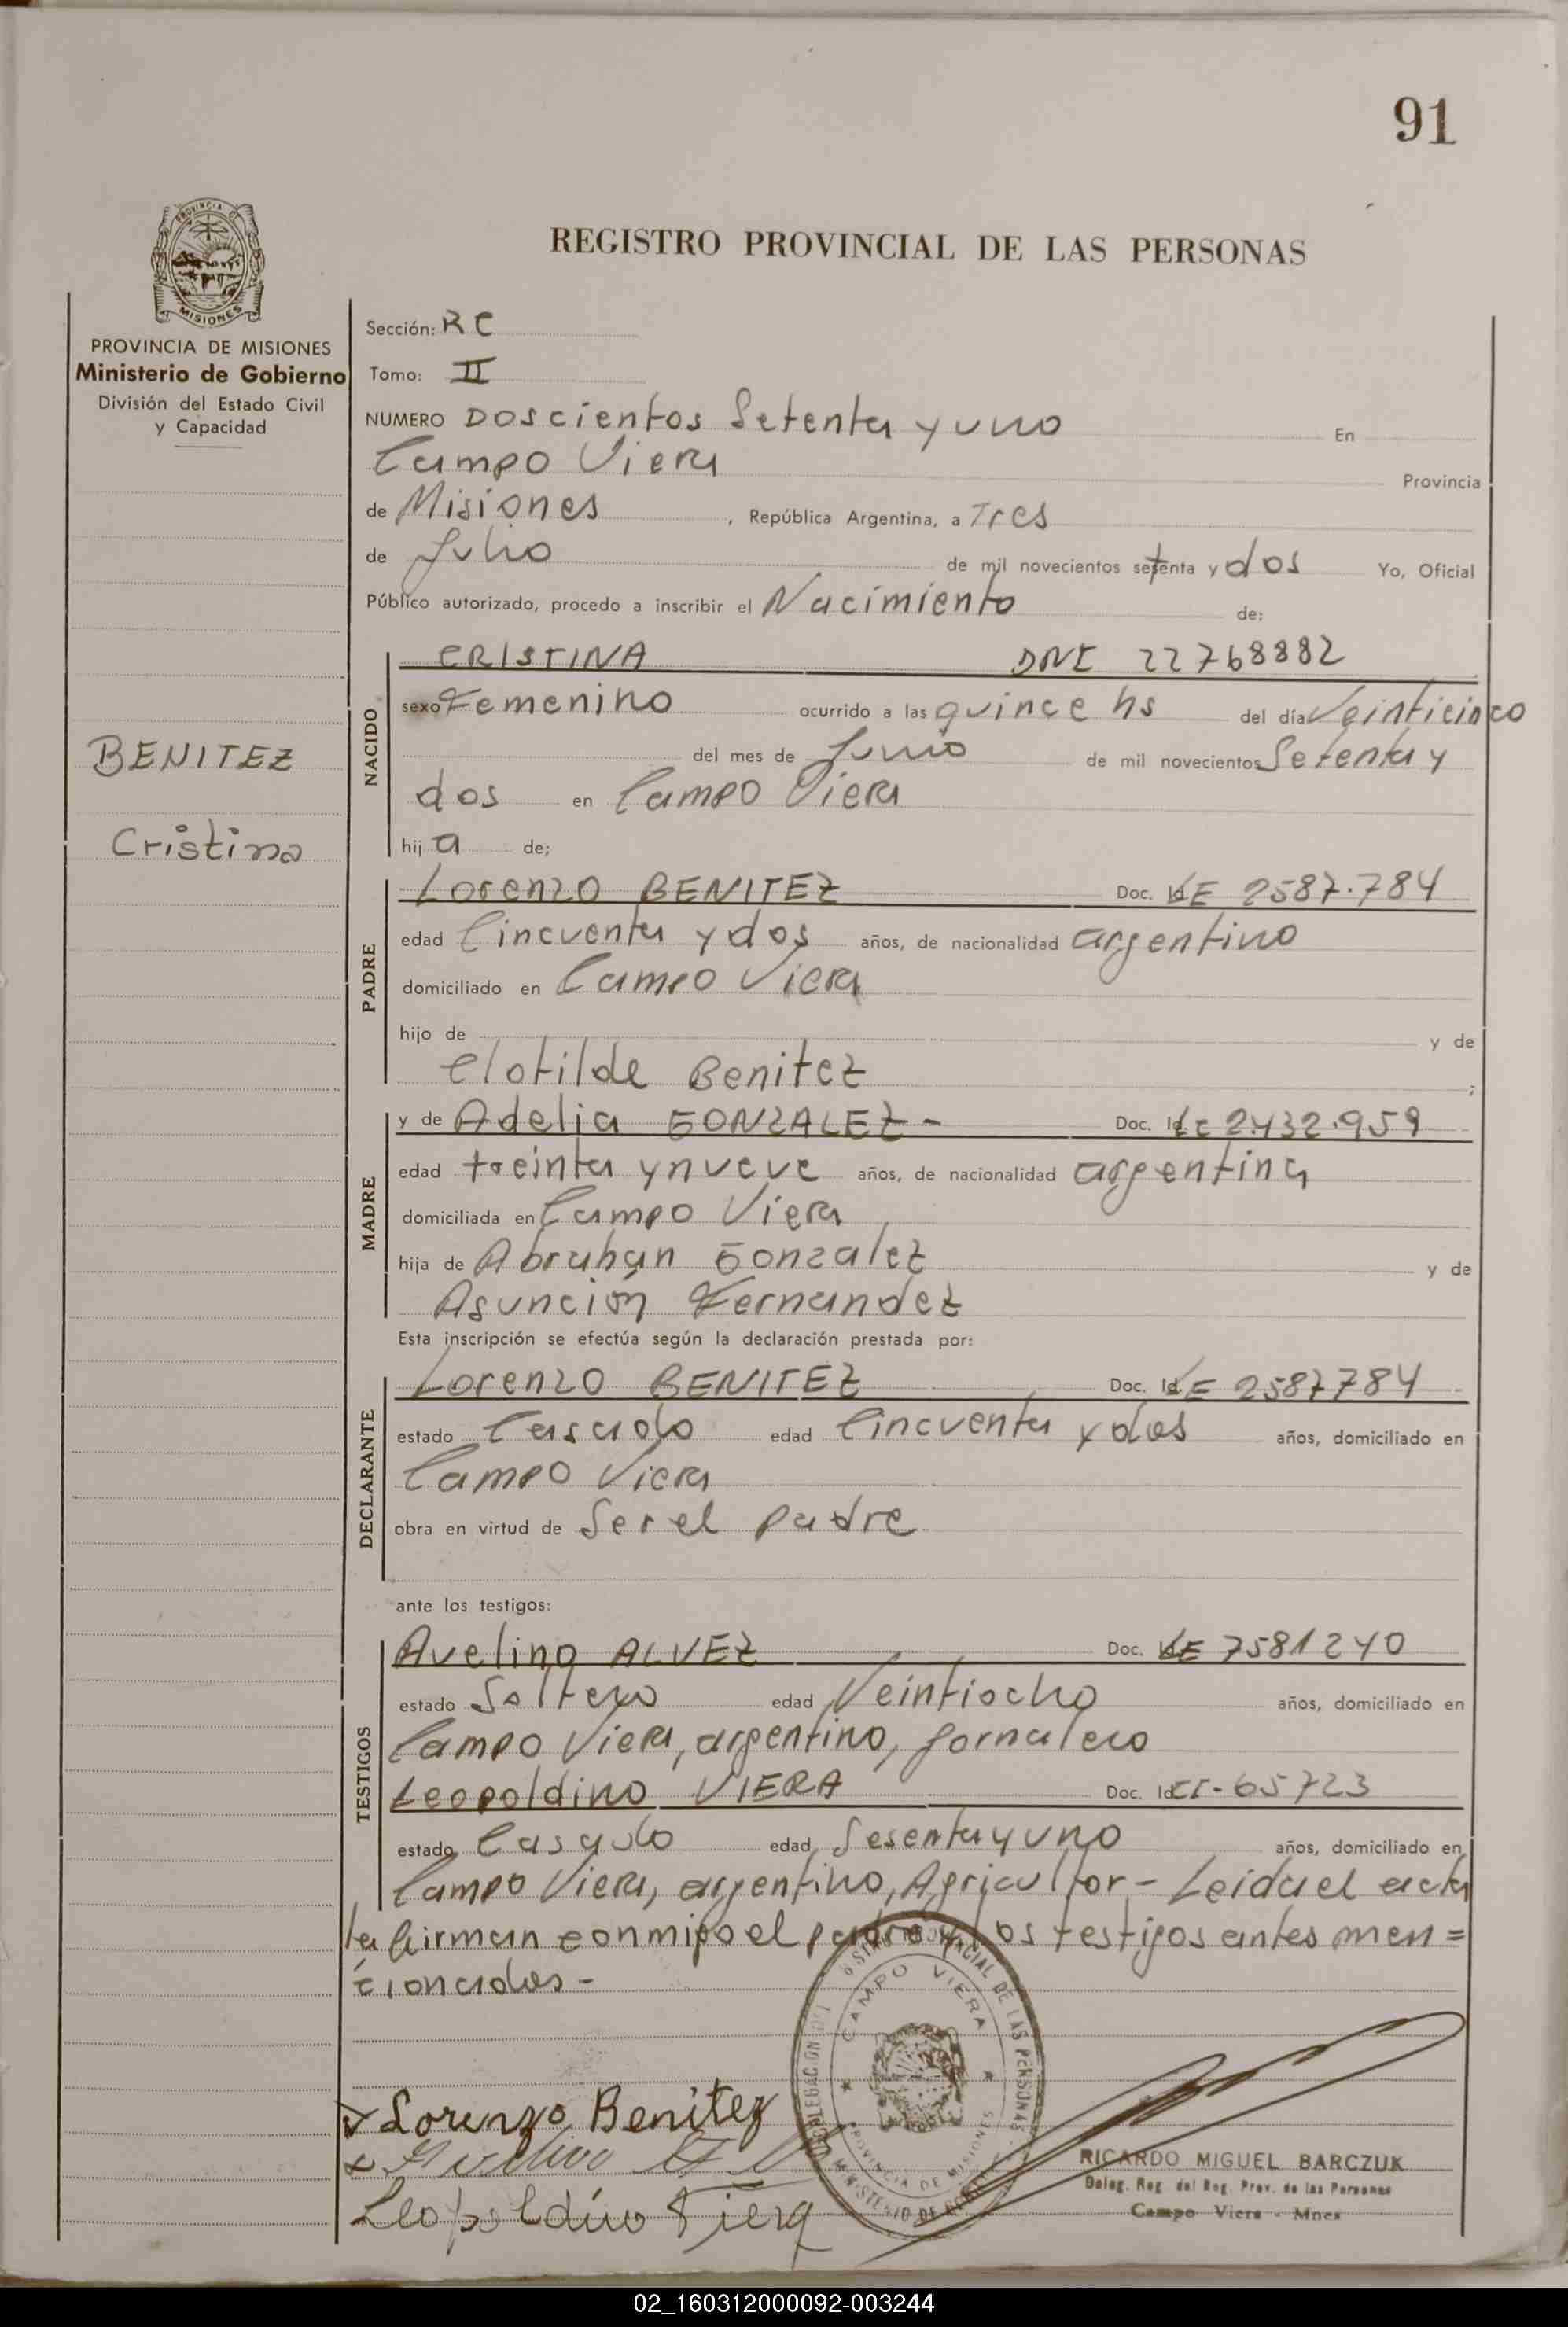 91
PROVINCIA DE
MISIONES
PROVINCIA DE MISIONES
Ministerio de Gobierno
División del Estado Civil
y Capacidad
BENITEZ
Cristina
REGISTRO PROVINCIAL DE LAS PERSONAS
Sección: RC
Tomo: II
NUMERO Doscientos Setenta y uno En
Campo Viera Provincia
de Misiones, República Argentina, a Tres
de Julio de mil novecientos setenta y dos Yo, Oficial
Público autorizado, procedo a inscribir el Nacimiento de:
NACIDO
CRISTINA DNI 22768882
sexo Femenino ocurrido a las quince hs del día Veinticinco
del mes de Junio de mil novecientos Setenta y
dos en Campo Viera
hija de;
PADRE
Lorenzo BENITEZ Doc. Id LE 2587.784
edad Cincuenta y dos años, de nacionalidad argentino
domiciliado en Campo Viera
hijo de y de
Clotilde Benitez ;
MADRE
y de Adelia GONZALEZ - Doc. Id LC 2.432.959
edad treinta y nueve años, de nacionalidad argentina
domiciliada en Campo Viera
hija de Abrahan Gonzalez y de
Asunción Fernandez
Esta inscripción se efectúa según la declaración prestada por:
DECLARANTE
Lorenzo BENITEZ Doc. Id LE 2587784
estado Casado edad Cincuenta y dos años, domiciliado en
Campo Viera
obra en virtud de Ser el padre
ante los testigos:
TESTIGOS
Avelino ALVEZ Doc. Id LE 7581240
estado Soltero edad Veintiocho años, domiciliado en
Campo Viera, argentino, Jornalero
Leopoldino VIERA Doc. Id CI-65723
estado Casado edad Sesenta y uno años, domiciliado en
Campo Viera, argentino, Agricultor - Leida el acta
la firman conmigo el padre y los testigos antes men=
cionados -
CAMPO VIERA
PROVINCIA DE MISIONES
Lorenzo Benitez
Leopoldino Viera
RICARDO MIGUEL BARCZUK
Deleg. Reg. del Reg. Prov. de las Personas
Campo Viera - Mnes
02_160312000092-003244